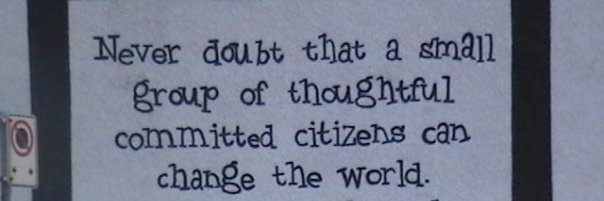 Never doubt that a small
group of thoughtful
committed citizens can
change the world.